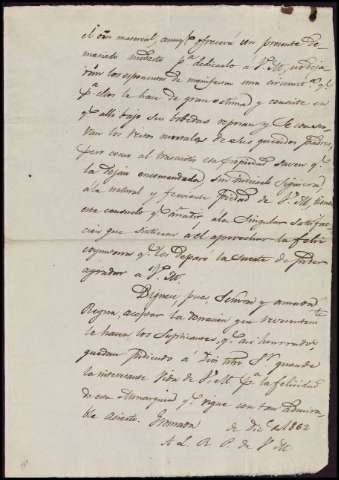 el don material, aunq.e ofrecerá un presente de-
masiado modesto p.a dedicarlo á V. M., no deja-
rán los esponentes de manifestar una circunst.a q.e
p.a ellos la hace de gran estima y consiste en
q.e alli bajo sus bobedas reposan y se conser-
van los restos mortales de sus queridos padres,
pero como al trasmitir su propiedad saven q.e
la dejan encomendada, sin 
á la natural y ferviente piedad de V. M. tienen
este consuelo q.e añadir á la singular satisfac-
ción que sintieran al aprovechar la feliz
coyuntura q.e les deparó la suerte de poder
agradar á V. M.
Dignese pues Señora y amada
Reyna, aceptar la donacion que reverentem.te
le hacen los suplicantes q.e asi honrrados
quedan pidiendo á Dios ntro. S.r guarde
la interesante vida de V. M. p.a la felicidad
de esta Monarquia q.e rige con tan admira-
ble acierto. Granada de Dic.e de 1862
A L. R. P. de V. M.